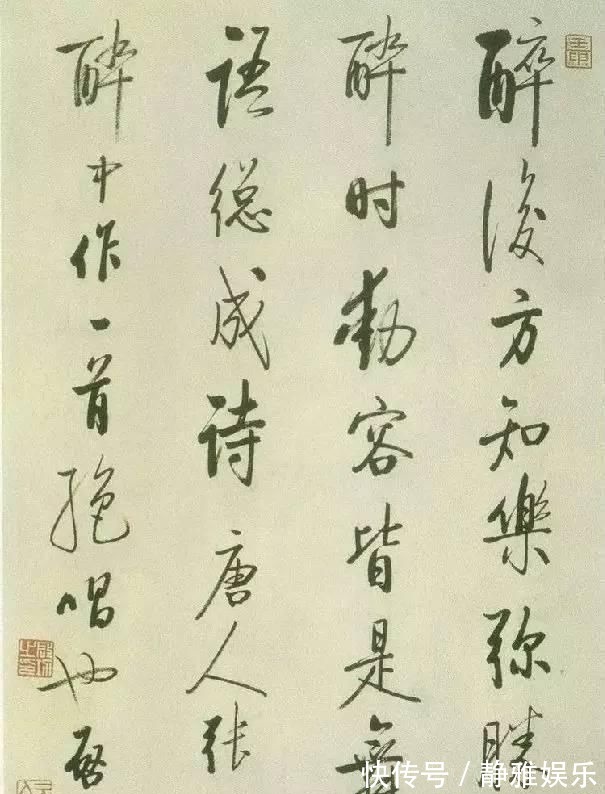 醉後方知樂弥勝
醉时動容皆是舞
语总成诗唐人张
醉中作一首絶唱也启
快传号/静雅娱乐